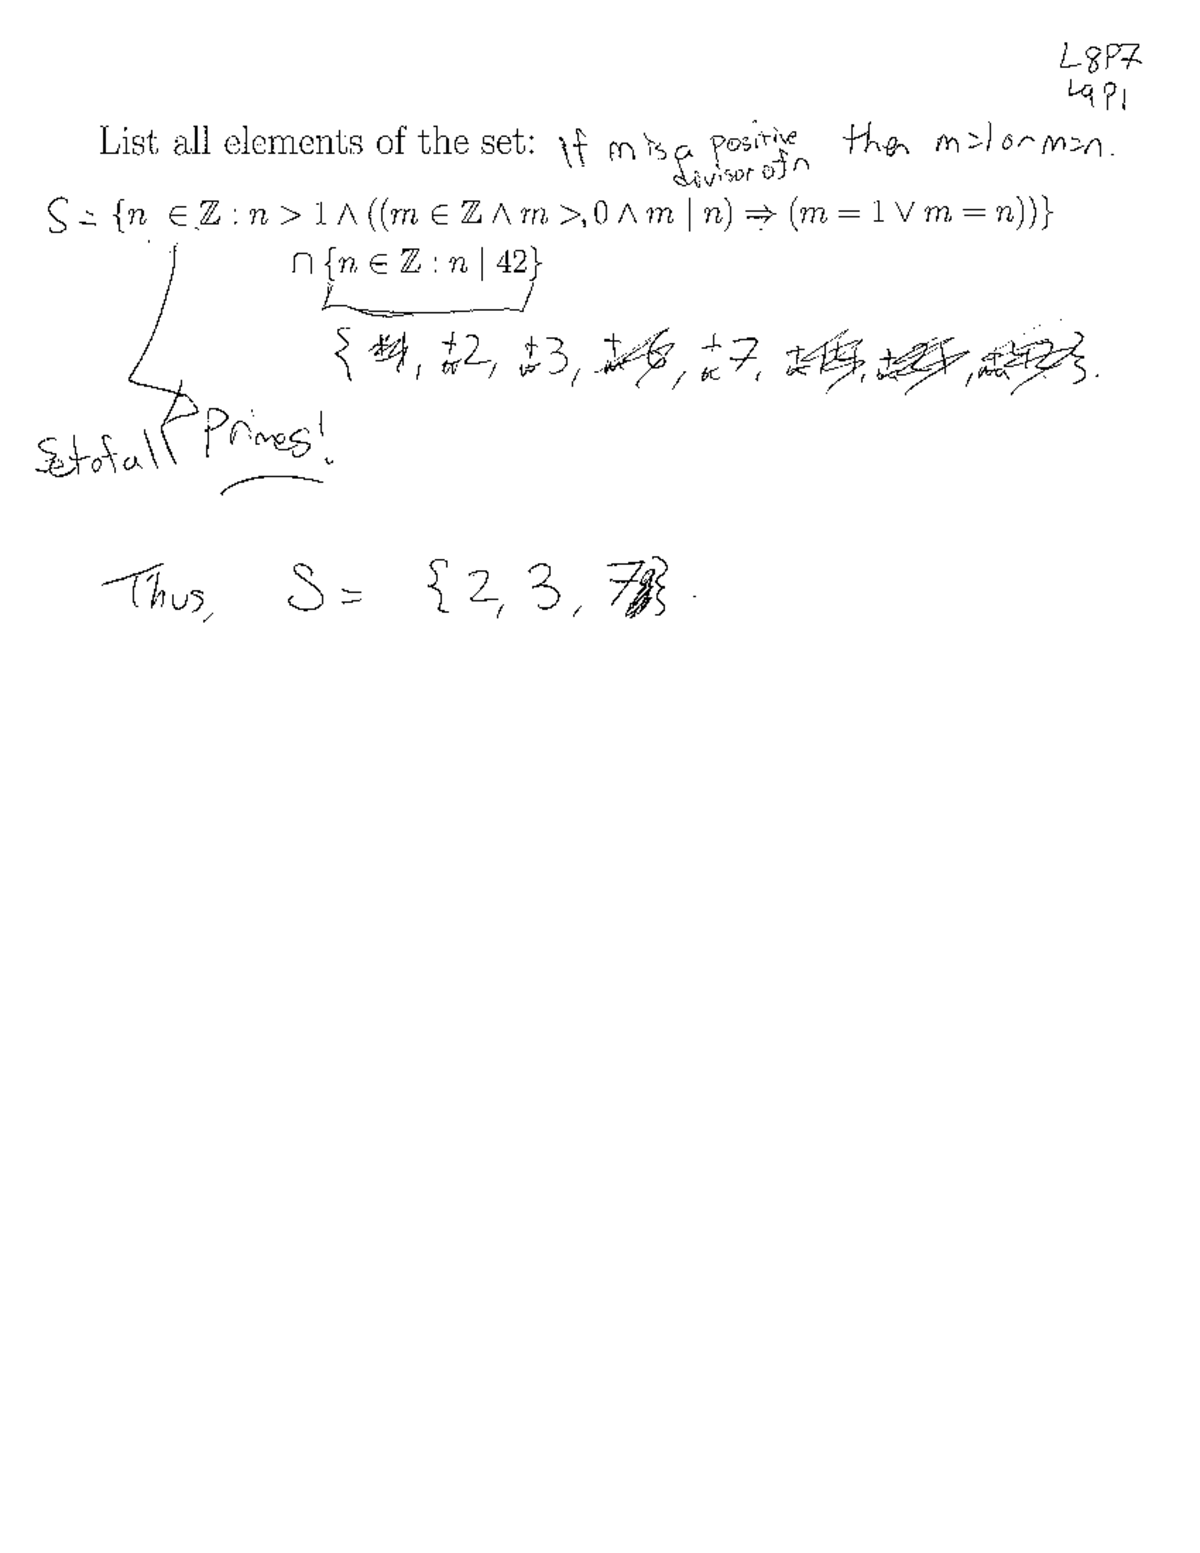 L8P7
L9P1
List all elements of the set: if m is a positive divisor of n then m=1 or m=n.
S = {n ∈ ℤ : n > 1 ∧ ((m ∈ ℤ ∧ m > 0 ∧ m | n) ⇒ (m = 1 ∨ m = n))}
∩ {n ∈ ℤ : n | 42}
{ ±1, ±2, ±3, ±6, ±7, ±14, ±21, ±42 }.
Set of all Primes!
Thus, S = {2, 3, 7}.